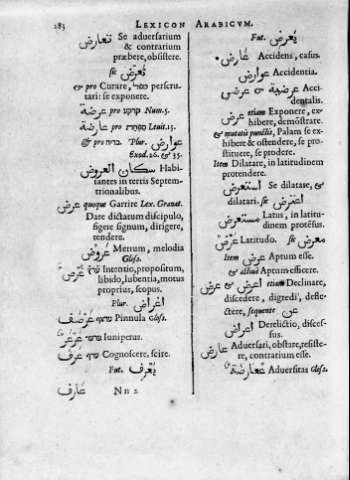 283 LEXICON ARABICVM.
تعارض Se adversarium
& contrarium
præbere, obsistere.
sic تعرّض
& pro Curare, perscru-
tari: se exponere.
& pro Num. 5. عرضة
& pro Levit. 13. عارضة
& pro Plur. عوارض
Exod. 26. & 35.
سكان العروض Habi-
tantes in tertis Septem-
trionalibus.
عرض quoque Garrire Lex. Granat.
Date dictatum discipulo,
figere signum, dirigere,
tendere.
عروض Metrum, melodia
Gloss.
عرض Intentio, propositum,
libido, lubentia, motus
proprius, scopus.
Plur. اعراض
Pinnula Gloss.
عرعر Iuniperus.
عرف Cognoscere, scire.
Fut. يعرف
Nn 2 عارف
Fut. يعرض
عارض Accidens, casus.
عوارض Accidentia.
عرضية & عرضي Acci-
dentalis.
عرض etiam Exponere, ex-
hibere, demonstrare.
& mutatis punctis, Palam se ex-
hibere & ostendere, se pro-
stituere, se prodere.
Item Dilatare, in latitudinem
protendere.
استعرض Se dilatare, &
dilatari. sic اعترض
مستعرض Latus, in latitu-
dinem protensus.
عرض Latitudo. sic معرض
Item عرض Aptum esse.
& Aptum efficere.
عرض & اعرض etiam Declinare,
discedere, digredi, defle-
ctere, sequente عن
اعراض Derelictio, disces-
sus.
عارض Adversari, obstare, resiste-
re, contrarium esse.
معارضة Adversitas Gloss.